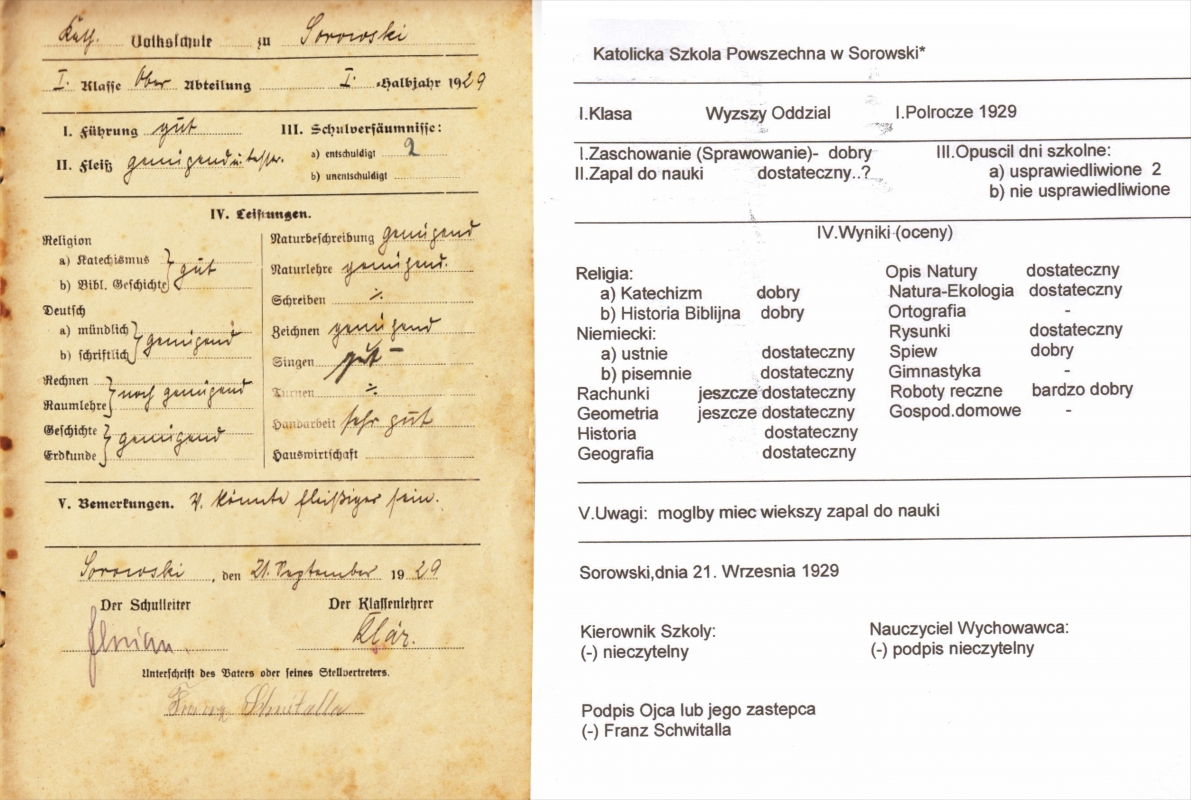 Kath. Volksschule zu Sorowski
I. Klasse Ober Abteilung I. Halbjahr 1929
I. Führung gut
II. Fleiß genügend u. besser.
III. Schulversäumnisse:
a) entschuldigt 2
b) unentschuldigt
IV. Leistungen.
Religion
a) Katechismus
b) Bibl. Geschichte } gut
Deutsch
a) mündlich
b) schriftlich } genügend
Rechnen
Raumlehre } noch genügend
Geschichte
Erdkunde } genügend
Naturbeschreibung genügend
Naturlehre genügend.
Schreiben ·/.
Zeichnen genügend
Singen gut –
Turnen ·/.
Handarbeit sehr gut
Hauswirtschaft
V. Bemerkungen. V. könnte fleißiger sein.
Sorowski, den 21. September 1929
Der Schulleiter
Florian
Der Klassenlehrer
Klár.
Unterschrift des Vaters oder seines Stellvertreters.
Franz Schwitalla
Katolicka Szkola Powszechna w Sorowski*
I.Klasa Wyzszy Oddzial I.Polrocze 1929
I.Zaschowanie (Sprawowanie)- dobry
II.Zapal do nauki dostateczny..?
III.Opuscil dni szkolne:
a) usprawiedliwione 2
b) nie usprawiedliwione
IV.Wyniki (oceny)
Religia:
a) Katechizm dobry
b) Historia Biblijna dobry
Niemiecki:
a) ustnie dostateczny
b) pisemnie dostateczny
Rachunki jeszcze dostateczny
Geometria jeszcze dostateczny
Historia dostateczny
Geografia dostateczny
Opis Natury dostateczny
Natura-Ekologia dostateczny
Ortografia -
Rysunki dostateczny
Spiew dobry
Gimnastyka -
Roboty reczne bardzo dobry
Gospod.domowe -
V.Uwagi: moglby miec wiekszy zapal do nauki
Sorowski,dnia 21. Wrzesnia 1929
Kierownik Szkoly:
(-) nieczytelny
Nauczyciel Wychowawca:
(-) podpis nieczytelny
Podpis Ojca lub jego zastepca
(-) Franz Schwitalla